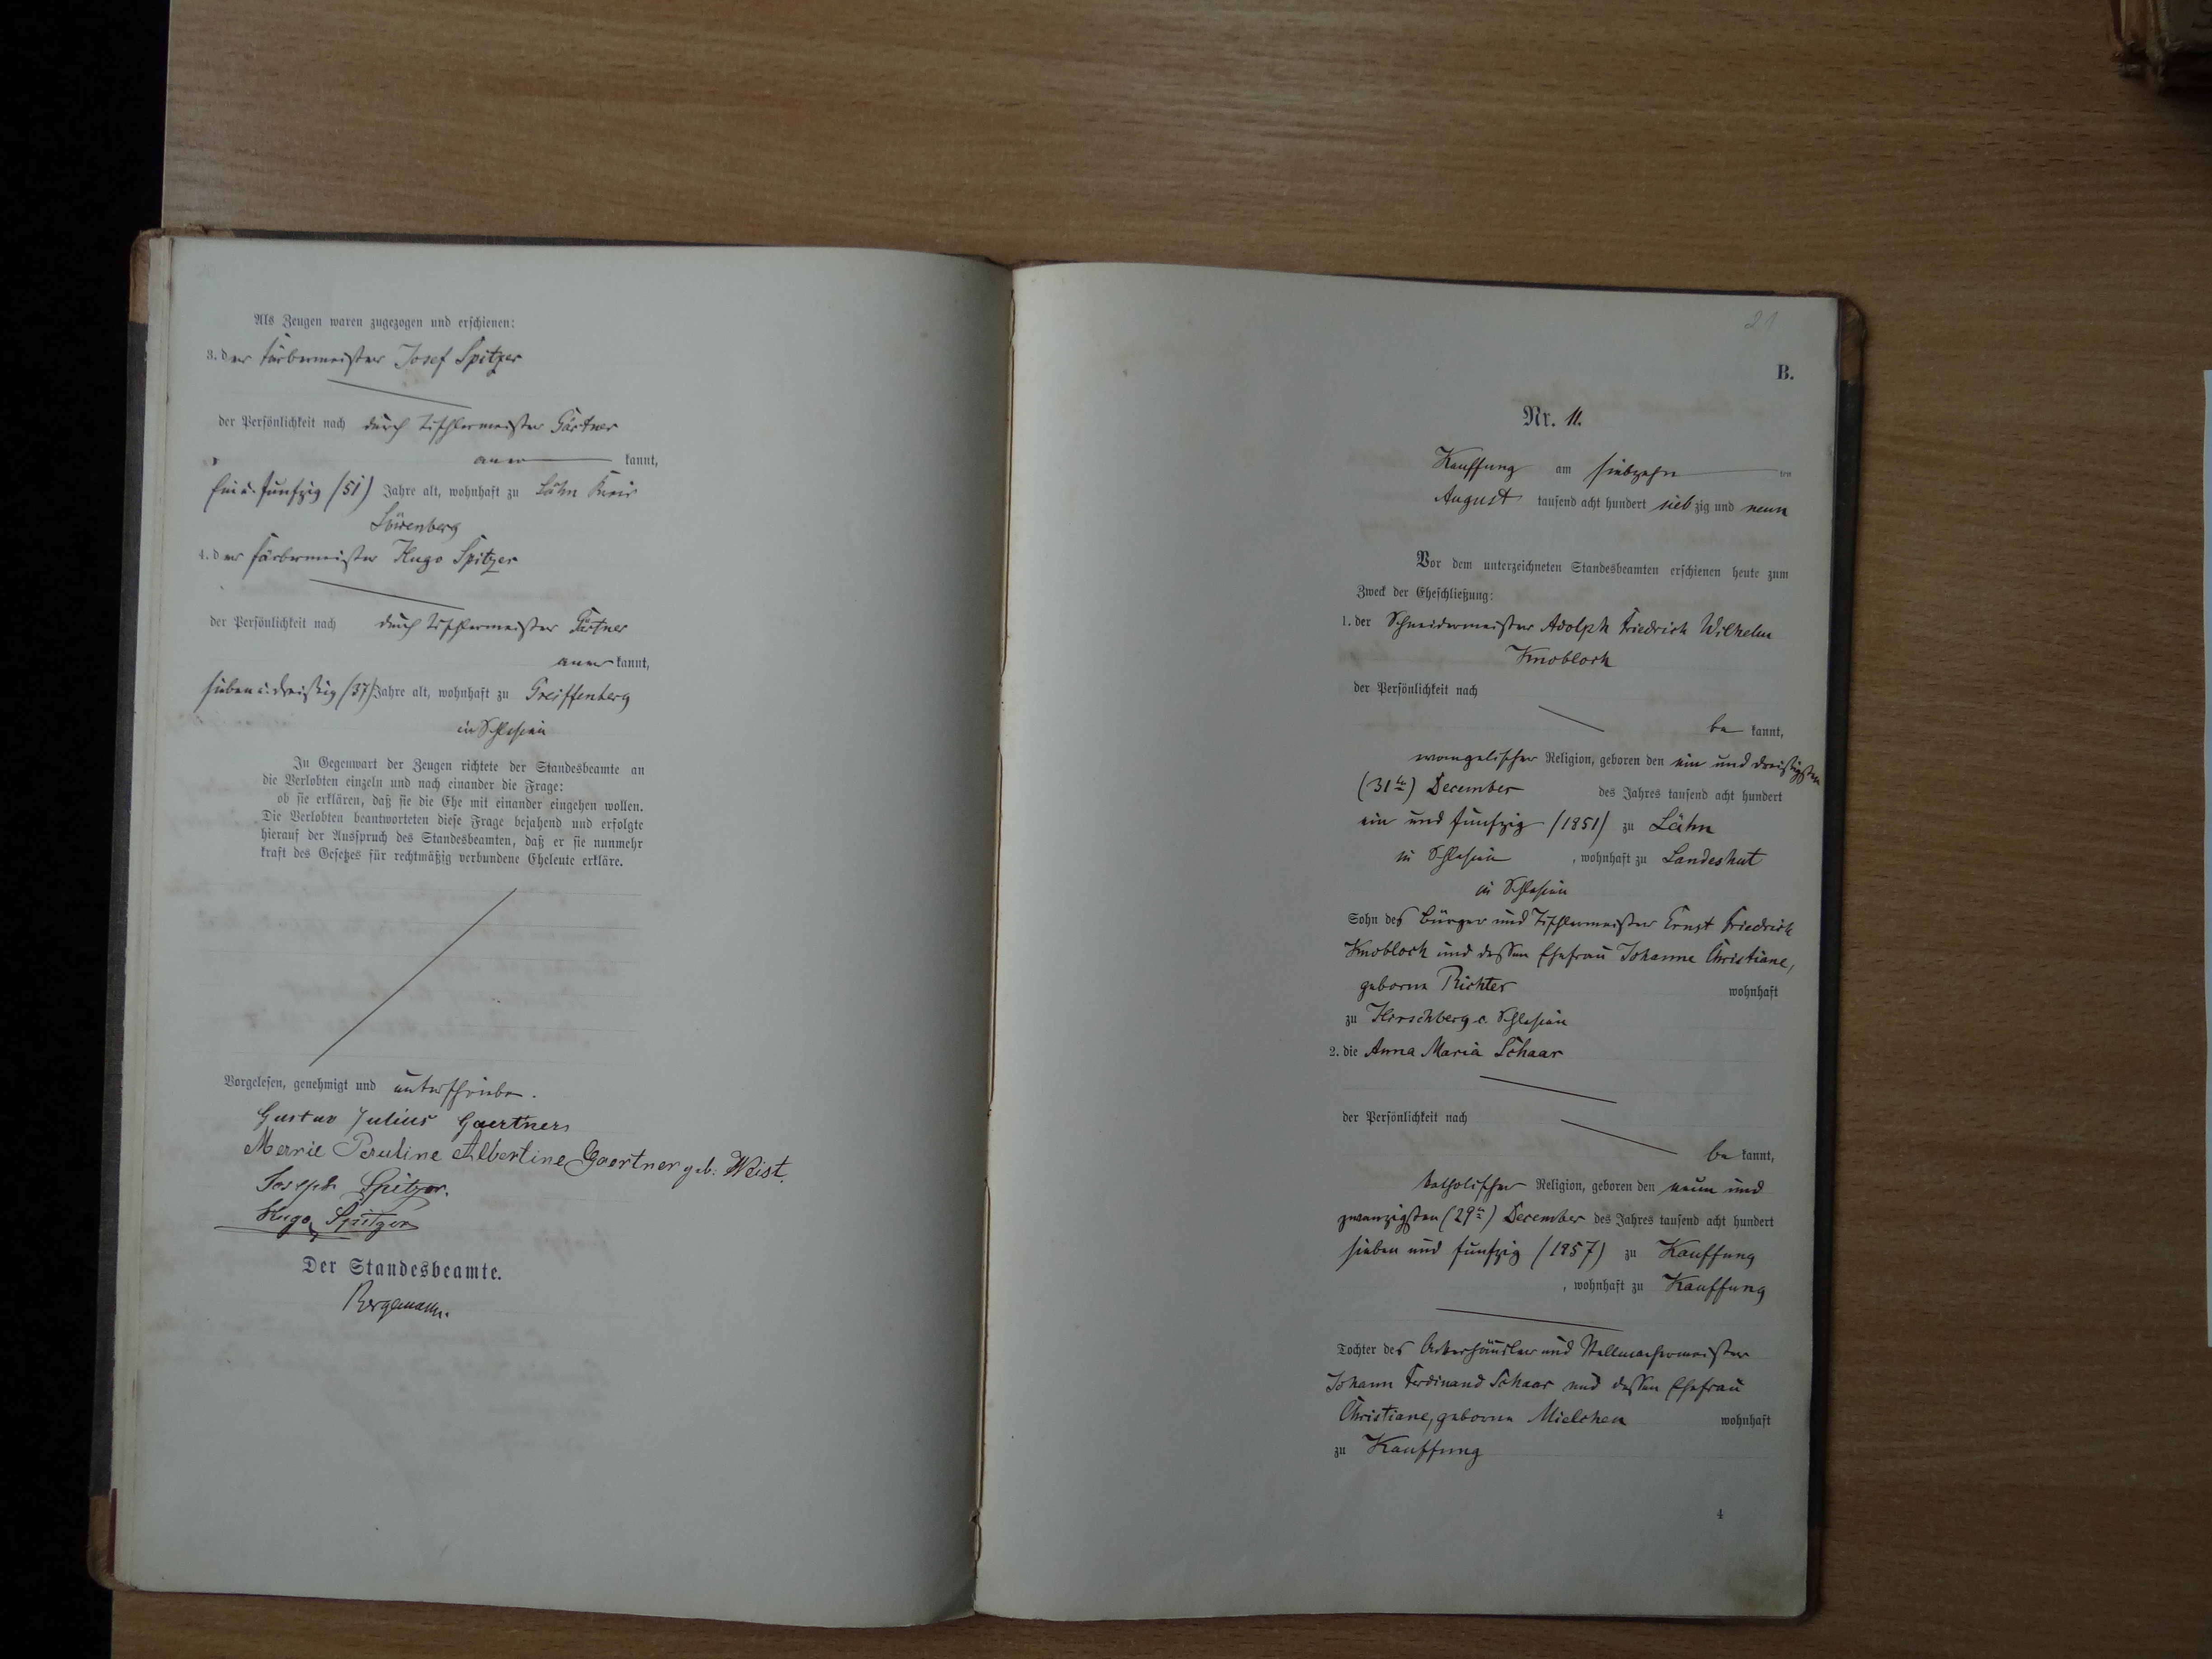 Als Zeugen waren zugezogen und erschienen:
3. der Färbermeister Josef Spitzer
der Persönlichkeit nach durch Tischlermeister Gärtner
aner kannt,
Ein u. funfzig (51) Jahre alt, wohnhaft zu Lähn Kreis
Löwenberg
4. der Färbermeister Hugo Spitzer
der Persönlichkeit nach durch Tischlermeister Gärtner
aner kannt,
sieben u. dreißig (37) Jahre alt, wohnhaft zu Greiffenberg
in Schlesien
In Gegenwart der Zeugen richtete der Standesbeamte an
die Verlobten einzeln und nach einander die Frage:
ob sie erklären, daß sie die Ehe mit einander eingehen wollen.
Die Verlobten beantworteten diese Frage bejahend und erfolgte
hierauf der Ausspruch des Standesbeamten, daß er sie nunmehr
kraft des Gesetzes für rechtmäßig verbundene Eheleute erkläre.
Vorgelesen, genehmigt und unterschrieben.
Gustav Julius Gaertner
Marie Pauline Albertine Gaertner geb: Weist.
Joseph Spitzer.
Hugo Spitzer
Der Standesbeamte.
Bergemann.
21
B.
Nr. 11.
Kauffung am siebzehn ten
August tausend acht hundert sieb zig und neun
Vor dem unterzeichneten Standesbeamten erschienen heute zum
Zweck der Eheschließung:
1. der Schneidermeister Adolph Friedrich Wilhelm
Knobloch
der Persönlichkeit nach
be kannt,
evangelischer Religion, geboren den ein und dreißigsten
(31ten) December des Jahres tausend acht hundert
ein und funfzig (1851) zu Lähn
in Schlesien , wohnhaft zu Landeshut
in Schlesien
Sohn des Bürger und Tischlermeister Ernst Friedrich
Knobloch und dessen Ehefrau Johanne Christiane,
geborne Richter wohnhaft
zu Hirschberg i. Schlesien
2. die Anna Maria Schaar
der Persönlichkeit nach
be kannt,
katholischer Religion, geboren den neun und
zwanzigsten (29ten) December des Jahres tausend acht hundert
sieben und funfzig (1857) zu Kauffung
, wohnhaft zu Kauffung
Tochter des Ackerhäusler und Stellmachermeister
Johann Ferdinand Schaar und dessen Ehefrau
Christiane, geborne Mielchen wohnhaft
zu Kauffung
4